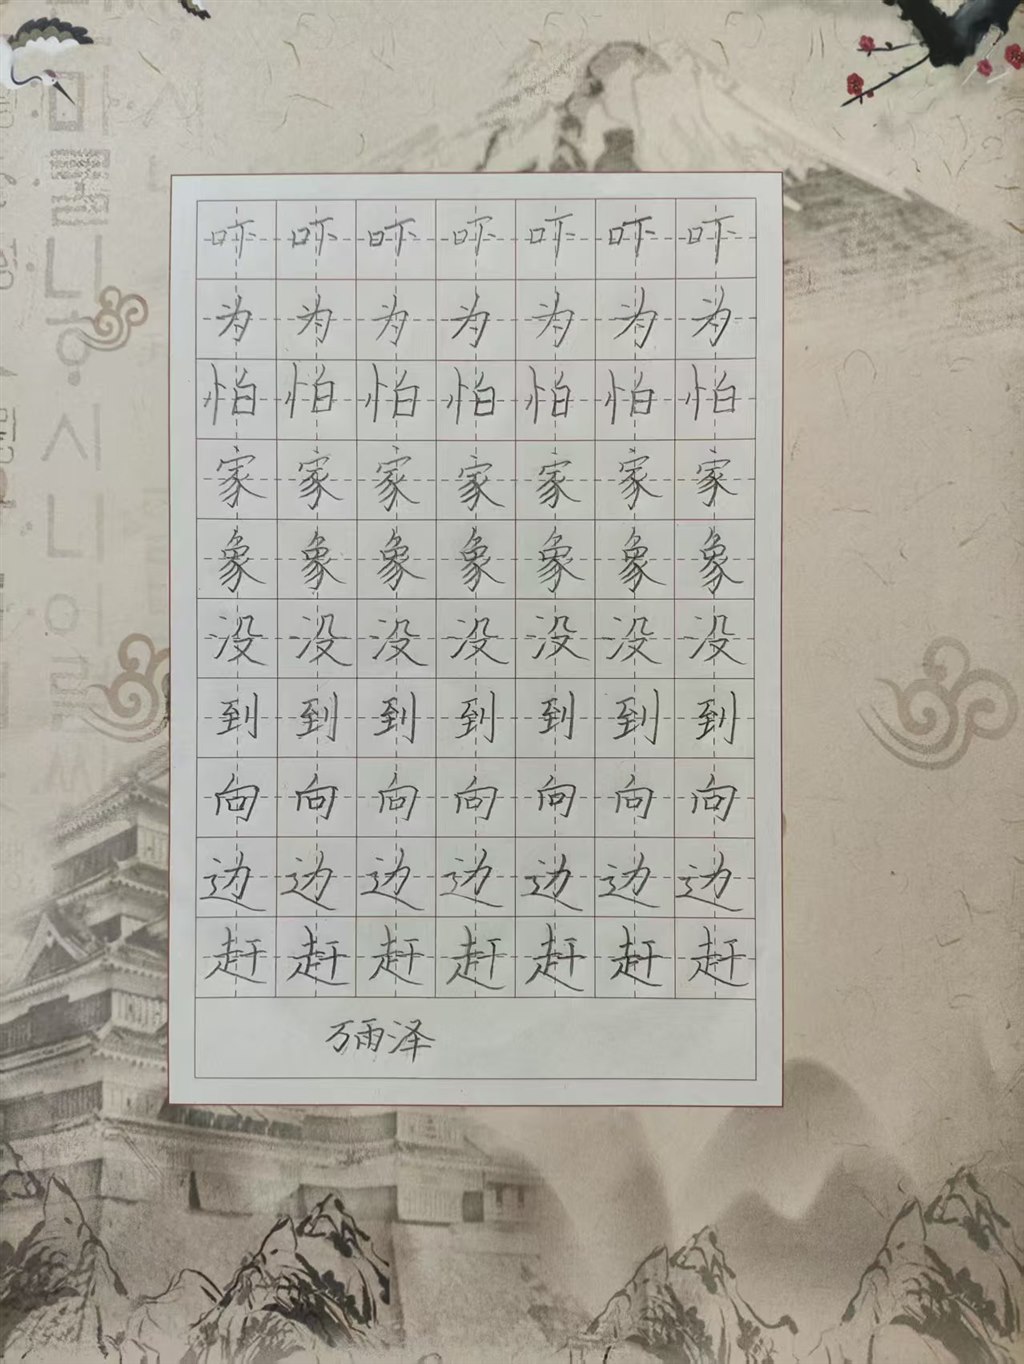 吓吓吓吓吓吓吓
为为为为为为为
怕怕怕怕怕怕怕
家家家家家家家
象象象象象象象
没没没没没没没
到到到到到到到
向向向向向向向
边边边边边边边
赶赶赶赶赶赶赶
万雨泽